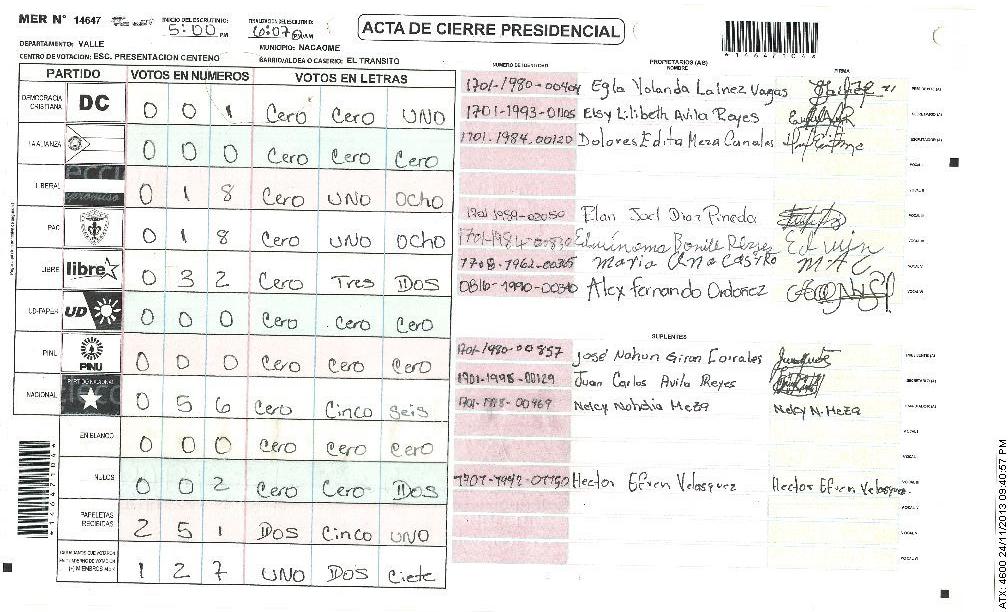 MER N° 14647
INICIO DEL ESCRUTINIO: 5:00 PM
FINALIZACION DEL ESCRUTINIO:
ACTA DE CIERRE PRESIDENCIAL
DEPARTAMENTO: VALLE
MUNICIPIO: NACAOME
CENTRO DE VOTACION: ESC. PRESENTACION CENTENO
BARRIO/ALDEA O CASERIO: EL TRANSITO
PARTIDO VOTOS EN NUMEROS VOTOS EN LETRAS
DEMOCRACIA CRISTIANA DC 0 0 1 Cero Cero UNO
LA ALIANZA 0 0 0 Cero Cero Cero
LIBERAL 0 1 8 Cero UNO Ocho
PAC 0 1 8 Cero UNO Ocho
LIBRE libre 0 3 2 Cero Tres Dos
UD-FAPER UD 0 0 0 Cero Cero Cero
PINU PINU 0 0 0 Cero Cero Cero
NACIONAL PARTIDO NACIONAL 0 5 6 Cero Cinco seis
EN BLANCO 0 0 0 Cero Cero Cero
NULOS 0 0 2 Cero Cero Dos
PAPELETAS RECIBIDAS 2 5 1 Dos Cinco UNO
1 2 7 UNO Dos Ciete
NUMERO DE IDENTIDAD PROPIETARIOS (AS) NOMBRE FIRMA
1701-1980-00404 Egla Yolanda Lainez Vagas
1701-1993-01105 Elsy Lilibeth Avila Reyes
1701-1984-00120 Dolores Edita Meza Canales
1701-1989-02050 Elan Joel Diaz Pineda
1701-1984-00830 Edwin
Maria Ana Castro M A C
0816-1990-00340 Alex Fernando Ordoñez
SUPLENTES
1701-1980-00857 José Nahun Giron Corrales
1701-1998-00129 Juan Carlos Avila Reyes
Nelcy Nohelia Meza Nelcy N. Meza
Hector Efren Velasquez Hector Efren Velasquez.
*1464710​4*
ATX: 4600 24/11/2013 09:40:57 PM